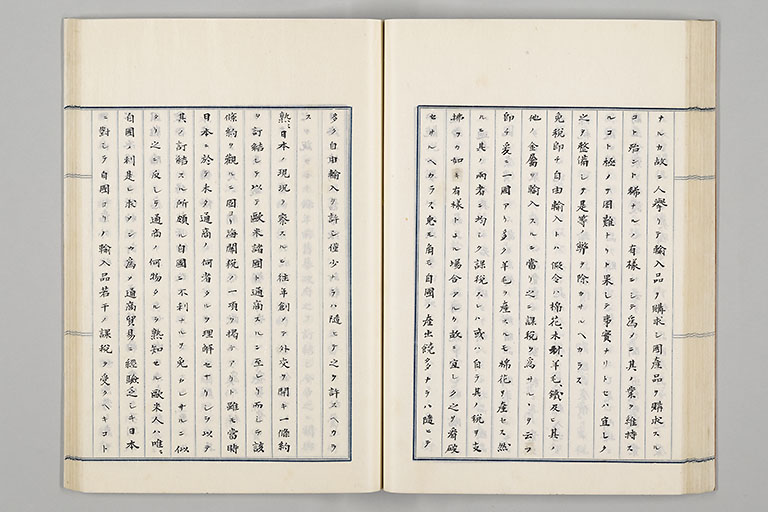 ナルカ故ニ人挙リテ輸入品ヲ購求シ国産品ヲ購求スル
コト殆ント稀ナルノ有様ニシテ為メニ其ノ業ヲ維持ス
ルコト極メテ困難ナリト果シテ事實ナリトセハ宜シク
之ヲ整備シテ是等ノ弊ヲ除カサルヘカラス
免税即チ自由輸入トハ假令ハ棉花、木材、羊毛、鐵及ヒ其ノ
他ノ金屬ヲ輸入スルニ當リ之ニ課税ヲ為サヽルヲ云フ
即チ爰ニ一國アリ多ク羊毛ヲ産スルモ棉花ヲ産セス然
ルニ其ノ両者ニ均シク課税スレハ或ハ自ラ其ノ税ヲ支
拂フカ如キ有様トナル場合アルカ故ニ宜シク之ヲ看破
セサルヘカラス兎ニ角モ自國ノ産出饒多ナラハ随テ
多ク自由輸入ヲ許シ僅少ナラハ随テ之ヲ許スヘカラ
ス
熟ニ日本ノ現況ヲ察スルニ往年創メテ外交ヲ開キ一條約
ヲ訂結シテ以テ歐米諸國ト通商スルニ至レリ而シテ該
條約ヲ觀ルニ固ヨリ海關税ノ一項ヲ掲ケアリト雖モ當時
日本ニ於テ未タ通商ノ何者タルヲ理解セサリシヲ以テ
其ノ訂結スル所頗ル自國ニ不利ナルヲ免カレサルニ似
タリ之ニ反シテ通商ノ何物タルヲ熟知セル歐米人ハ唯ニ
自國ノ利是レ求メンカ為メ通商貿易ニ經驗乏シキ日本
ニ對シテ自國ヨリノ輸入品若干ノ課税ヲ受クヘキコト